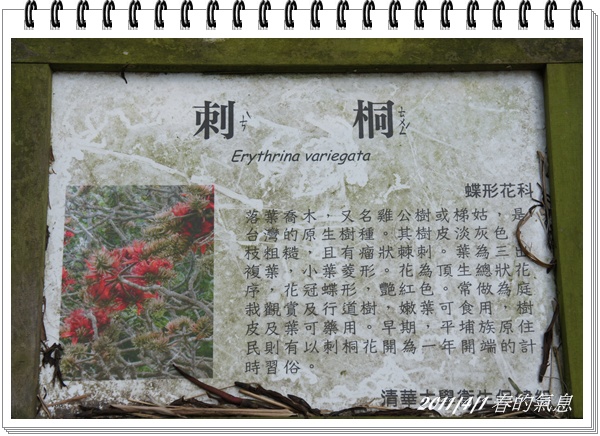 刺桐
ㄘˋ ㄊㄨㄥˊ
Erythrina variegata
蝶形花科
落葉喬木，又名雞公樹或梯姑，是
台灣的原生樹種。其樹皮淡灰色，
枝粗糙，且有瘤狀棘刺。葉為三出
複葉，小葉菱形。花為頂生總狀花
序，花冠蝶形，艷紅色。常做為庭
栽觀賞及行道樹，嫩葉可食用，樹
皮及葉可藥用。早期，平埔族原住
民則有以刺桐花開為一年開端的計
時習俗。
清華大學
2011/4/1 春的氣息